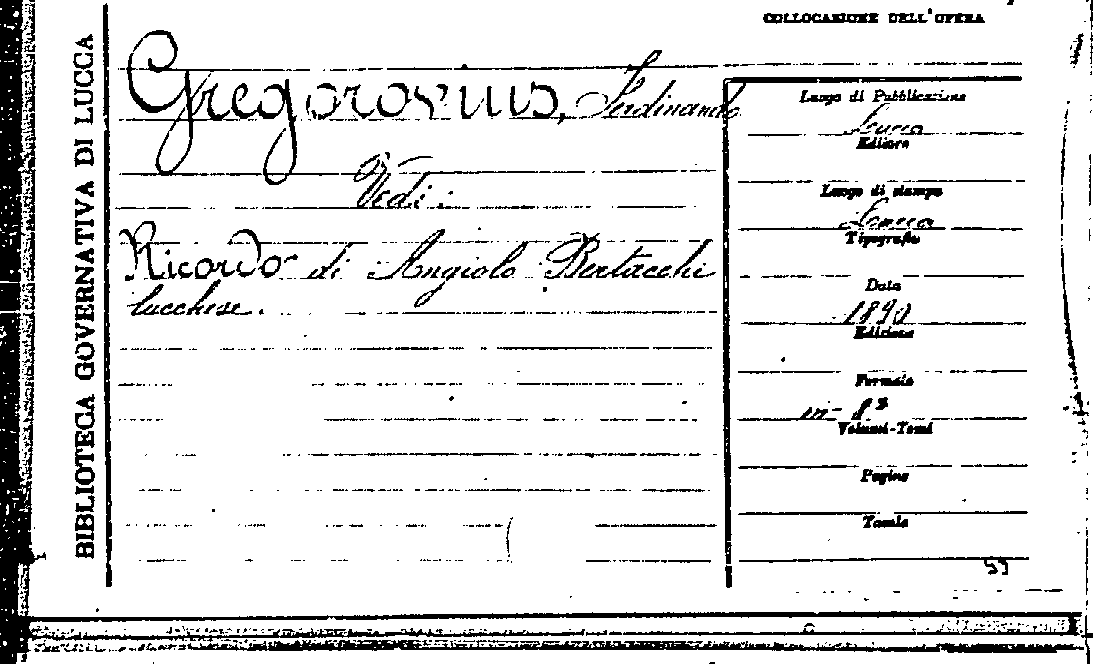 COLLOCAZIONE DELL'OPERA
BIBLIOTECA GOVERNATIVA DI LUCCA
Gregorovius, Ferdinando
Vedi:
Ricordo di Angiolo Bertacchi
lucchese.
Luogo di Pubblicazione
Lucca
Editore
Luogo di stampa
Lucca
Tipografia
Data
Edizione
Formato
in-8°
Volumi-Tomi
Pagine
Tavole